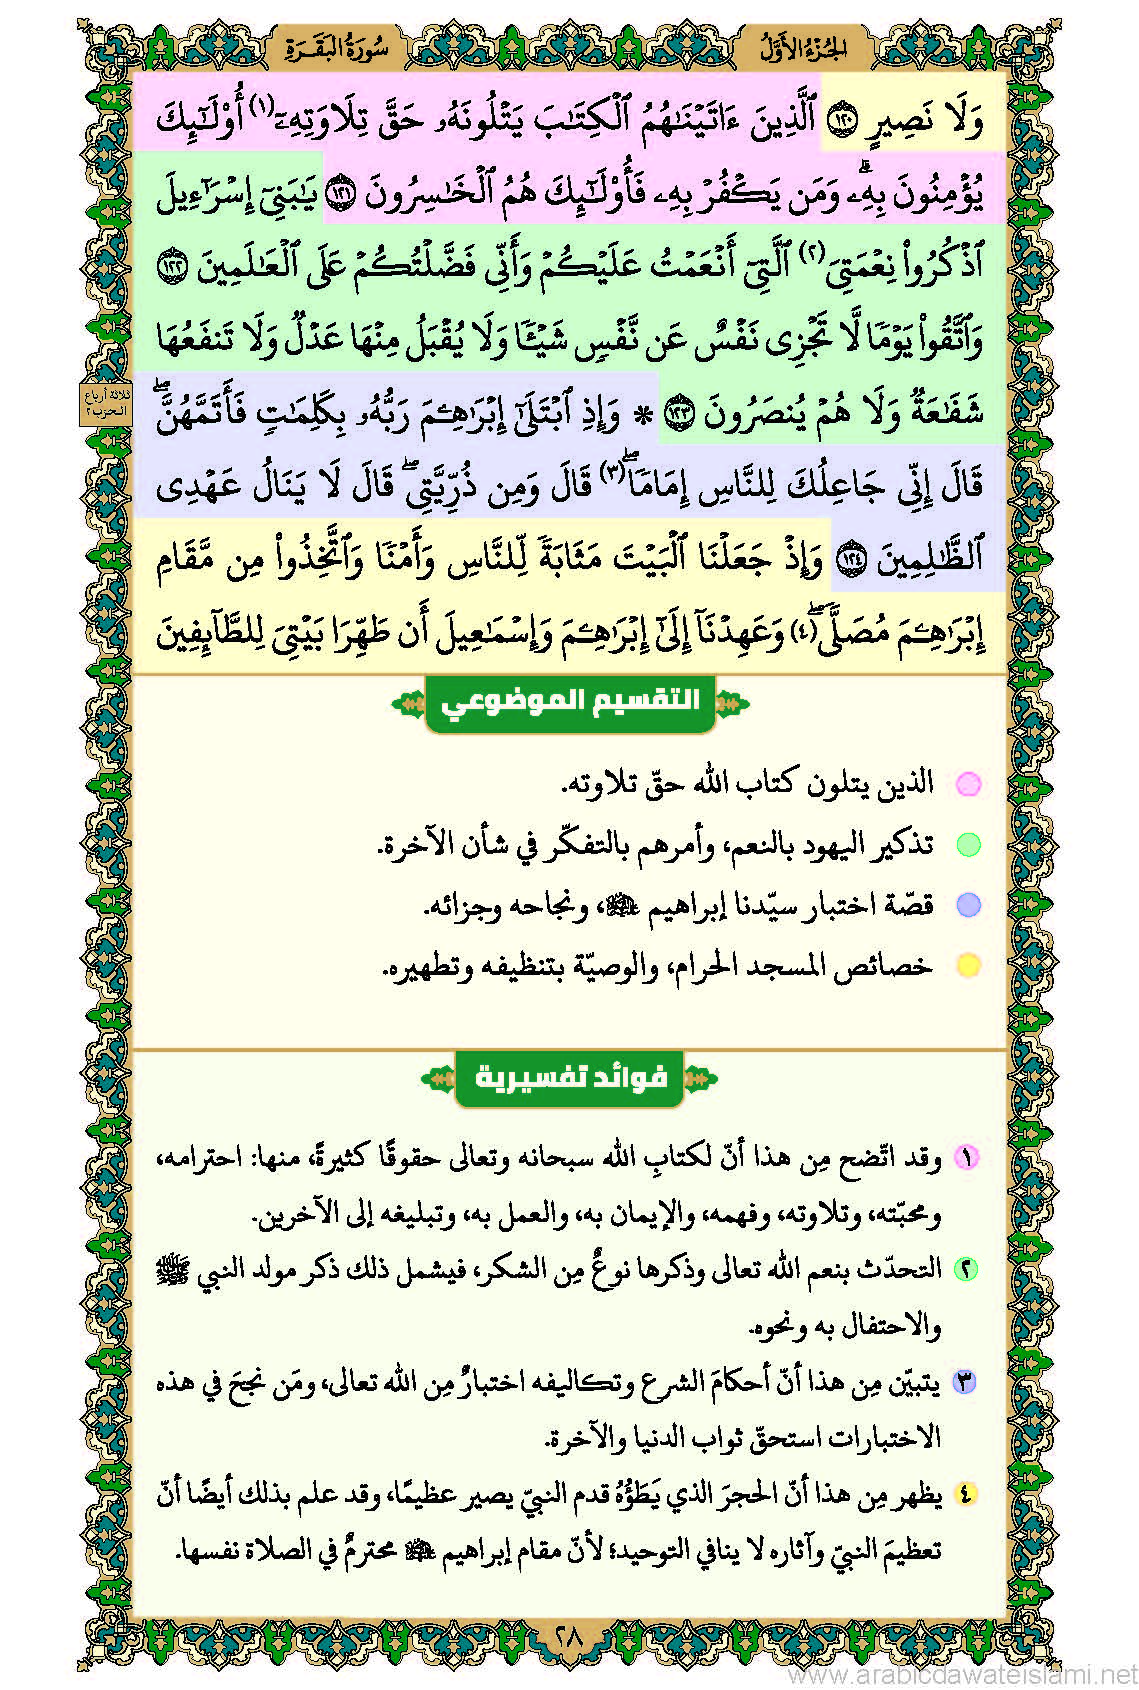 الجُزْءُ الأَوَّلُ
سُورَةُ البَقَرَةِ
وَلَا نَصِيرٍ ١٢٠ ٱلَّذِينَ ءَاتَيْنَٰهُمُ ٱلْكِتَٰبَ يَتْلُونَهُۥ حَقَّ تِلَاوَتِهِۦٓ (١) أُوْلَٰٓئِكَ
يُؤْمِنُونَ بِهِۦۗ وَمَن يَكْفُرْ بِهِۦ فَأُوْلَٰٓئِكَ هُمُ ٱلْخَٰسِرُونَ ١٢١ يَٰبَنِيٓ إِسْرَٰٓءِيلَ
ٱذْكُرُواْ نِعْمَتِيَ (٢) ٱلَّتِيٓ أَنْعَمْتُ عَلَيْكُمْ وَأَنِّي فَضَّلْتُكُمْ عَلَى ٱلْعَٰلَمِينَ ١٢٢
وَٱتَّقُواْ يَوْمًا لَّا تَجْزِي نَفْسٌ عَن نَّفْسٍ شَيْـًٔا وَلَا يُقْبَلُ مِنْهَا عَدْلٌ وَلَا تَنفَعُهَا
شَفَٰعَةٌ وَلَا هُمْ يُنصَرُونَ ١٢٣ * وَإِذِ ٱبْتَلَىٰٓ إِبْرَٰهِـۧمَ رَبُّهُۥ بِكَلِمَٰتٍ فَأَتَمَّهُنَّۖ
ثلاثة أرباع
الحزب ٢
قَالَ إِنِّي جَاعِلُكَ لِلنَّاسِ إِمَامًاۖ (٣) قَالَ وَمِن ذُرِّيَّتِيۖ قَالَ لَا يَنَالُ عَهْدِي
ٱلظَّٰلِمِينَ ١٢٤ وَإِذْ جَعَلْنَا ٱلْبَيْتَ مَثَابَةً لِّلنَّاسِ وَأَمْنًا وَٱتَّخِذُواْ مِن مَّقَامِ
إِبْرَٰهِـۧمَ مُصَلًّىۖ (٤) وَعَهِدْنَآ إِلَىٰٓ إِبْرَٰهِـۧمَ وَإِسْمَٰعِيلَ أَن طَهِّرَا بَيْتِيَ لِلطَّآئِفِينَ
التقسيم الموضوعي
الذين يتلون كتاب الله حقّ تلاوته.
تذكير اليهود بالنعم، وأمرهم بالتفكّر في شأن الآخرة.
قصّة اختبار سيّدنا إبراهيم عليه السلام، ونجاحه وجزائه.
خصائص المسجد الحرام، والوصيّة بتنظيفه وتطهيره.
فوائد تفسيرية
١ وقد اتّضح مِن هذا أنّ لكتابِ الله سبحانه وتعالى حقوقًا كثيرةً، منها: احترامه،
ومحبّته، وتلاوته، وفهمه، والإيمان به، والعمل به، وتبليغه إلى الآخرين.
٢ التحدّث بنعم الله تعالى وذكرها نوعٌ مِن الشكر، فيشمل ذلك ذكر مولد النبي ﷺ
والاحتفال به ونحوه.
٣ يتبيّن مِن هذا أنّ أحكامَ الشرع وتكاليفه اختبارٌ مِن الله تعالى، ومَن نجحَ في هذه
الاختبارات استحقّ ثواب الدنيا والآخرة.
٤ يظهر مِن هذا أنّ الحجرَ الذي يَطَؤُهُ قدم النبيّ يصير عظيمًا، وقد علم بذلك أيضًا أنّ
تعظيمَ النبيّ وآثاره لا ينافي التوحيد؛ لأنّ مقام إبراهيم عليه السلام محترمٌ في الصلاة نفسها.
٢٨
www.arabicdawateislami.net